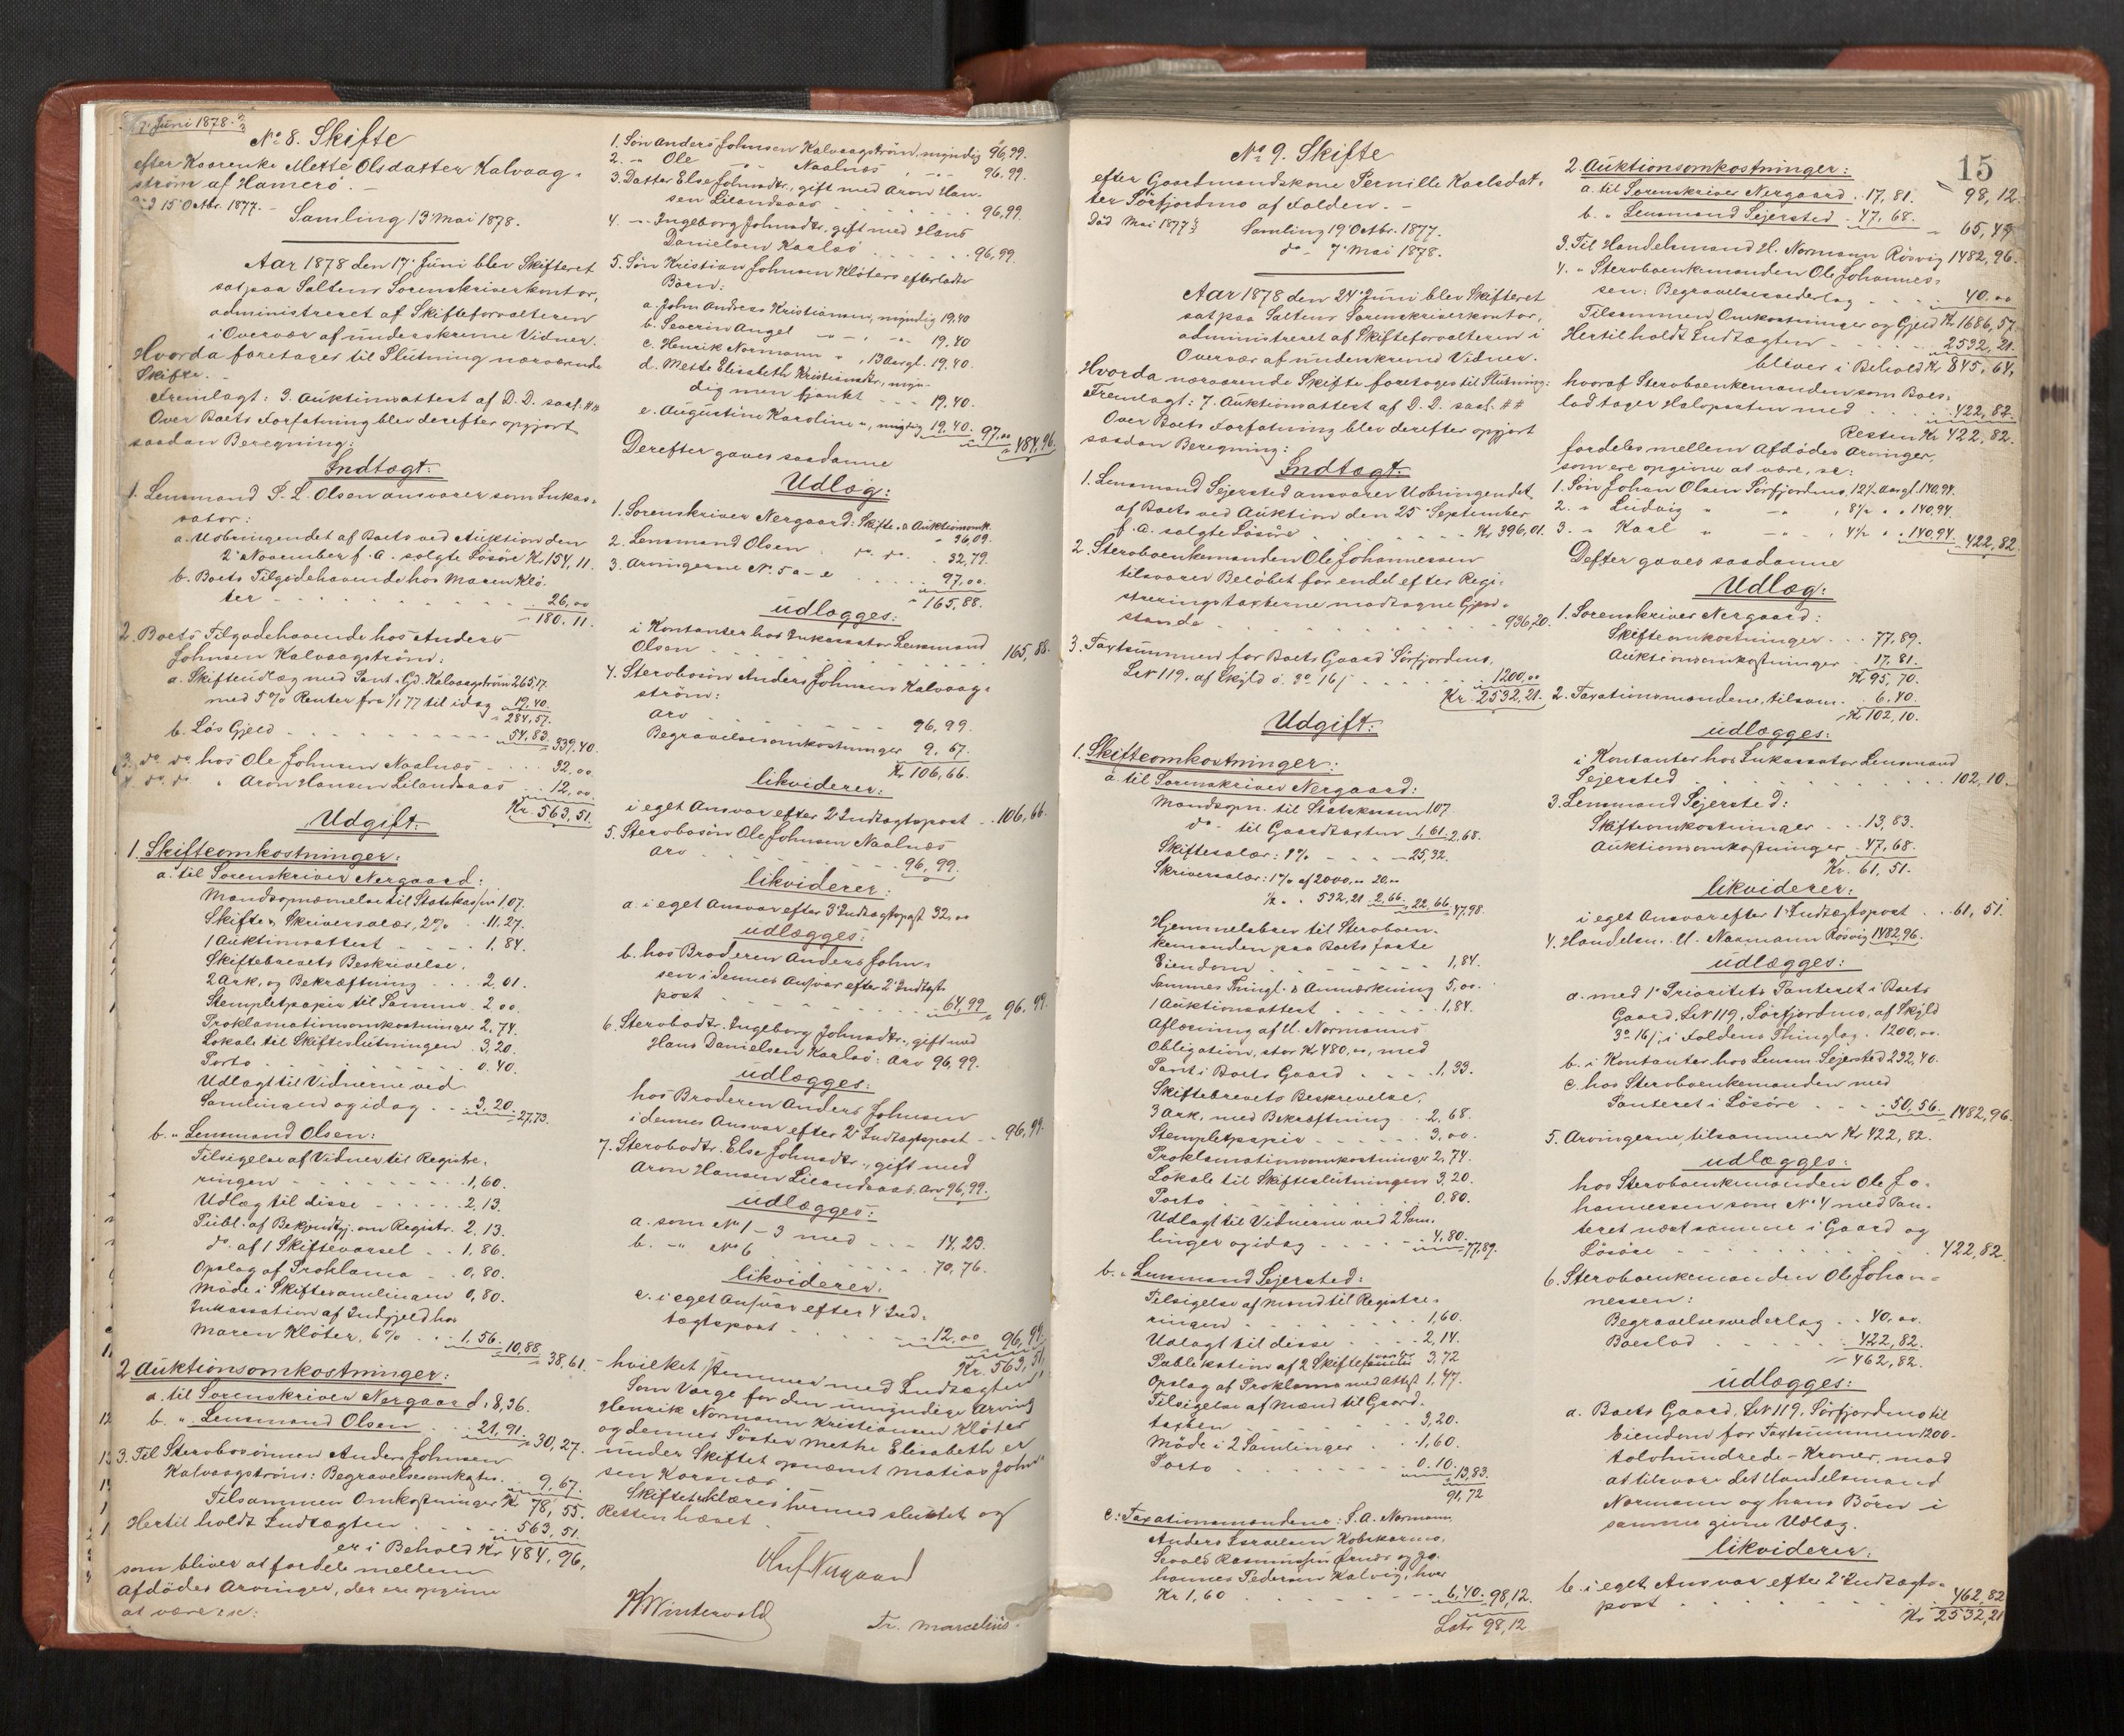 17 Juni 1878.
No 8. Skifte
efter Kaarenke Mette Olsdatter Kalvaag-
ström af Hamerö. -
Död 15 Octbr. 1877. -
Samling 13 Mai 1878.
Aar 1878 den 17 Juni blev Skifteret
sat paa Saltens Sorenskriverkontor,
administreret af Skifteforvalteren
i Overvær af underskrevne Vidner.
Hvorda foretages til Slutning nærværende
Skifte. -
Fremlagt: 3. Auktionsattest af D. D. saal. ##
Over Boets Forfatning blev derefter opgjort
saadan Beregning:
Indtægt:
1. Lensmand P. L. Olsen ansvarer som Inkas-
sator:
a. Udbringendet af Boets ved Auktion den
2 November f. A. solgte Lösöre Kr 154,11.
b. Boets Tilgodehavende hos Maren Klö-
ter 26,00
180.11.
2. Boets Tilgodehavende hos Anders
Johnsen Kalvaagström:
a. Skifteudlæg med Pant i Gd. Kalvaagström 265,17.
med 5% Renter fra 1/1 77 til idag 19,40.
284,57.
b. Lös Gjeld 54,83. 339,40.
3. do do hos Ole Johnsen Naalnæs 32,00
4. do do " Aron Hansen Lilandsaas 12,00
Kr. 563,51.
Udgift:
1. Skifteomkostninger:
a. til Sorenskriver Nergaard:
Mandsopnævnelse til Statskassen 1,07.
Skifte & Skriversalær, 2% 11,27.
1 Auktionsattest 1,84.
Skiftebrevets Beskrivelse,
2 Ark, og Bekræftning 2,01.
Stempletpapir til Samme 2,00.
Proklamationsomkostninger 2,74.
Lokale til Skifteslutningen 3,20.
Porto 0,40.
Udlagt til Vidnerne ved
Samlingen og idag 3,20 27,73.
b. " Lensmand Olsen:
Tilsigelse af Vidner til Registre-
ringen 1,60.
Udlæg til disse 2,13.
Publ. af Bekjendtgj. om Registr. 2,13.
do. af 1 Skiftevarsel 1,86.
Opslag af Proklama 0,80.
Möde i Skiftesamlingen 0,80.
Inkassation af Indgjeld hos
Maren Klöter, 6% 1,56. 10,88
38,61.
2 Auktionsomkostninger:
a. til Sorenskriver Nergaard 8,36.
b. " Lensmand Olsen 21,91. 30,27.
3. Til Stervbosönnen Anders Johnsen
Kalvaagström: Begravelsesomkostn. 9,67.
Tilsammen Omkostninger Kr 78,55.
Hertil holdt Indtægten 563,51.
er i Behold Kr 484,96,
som bliver at fordele mellem
Afdödes Arvinger, der ere opgivne
at være sc:
1. Sön Anders Johnsen Kalvaagström, myndig 96,99.
2. " Ole " Naalnæs " 96,99.
3. Datter Else Johnsdtr., gift med Aron Han-
sen Lilandsaas 96,99
4. " Ingeborg Johnsdtr., gift med Hans
Danielsen Karlsö 96,99.
5. Sön Kristian Johnsen Klöters efterladte
Börn:
a. John Andreas Kristiansen, myndig 19,40
b. Severin Angel " " 19,40
c. Henrik Normann " , 13 Aar gl. 19,40.
d. Mette Elisabeth Kristiansdtr., myn-
dig men fjantet 19,40.
e. Augustine Karoline ", myndig 19,40. 97,00
484,96.
Derefter gaves saadanne
Udlæg:
1. Sorenskriver Nergaard: Skifte- & Auktionsomk.
36,09.
2. Lensmand Olsen do do. 32,79.
3. Arvingerne No 5 a-e 97,00.
165,88.
udlægges:
i Kontanter hos Inkassator Lensmand
Olsen 165,88.
4. Stervbosön Anders Johnsen Kalvaag-
ström:
Arv 96,99.
Begravelsesomkostninger 9,67.
Kr 106,66.
likviderer:
i eget Ansvar efter 2 Indtægtspost 106,66.
5. Stervbosön Ole Johnsen Naalnæs
Arv 96,99.
likviderer:
a. i eget Ansvar efter 3 Indtægtspost 32,00
udlægges:
b. hos Broderen Anders John-
sen i dennes Ansvar efter 2 Indtægts-
post 64,99 96,99.
6. Stervbodtr. Ingeborg Johnsdtr., gift med
Hans Danielsen Karlsö: Arv 96,99.
udlægges:
hos Broderen Anders Johnsen
i dennes Ansvar efter 2 Indtægtspost 96,99.
7. Stervbodtr. Else Johnsdtr., gift med
Aron Hansen Lilandsaas, Arv 96,99.
udlægges:
a. som No 1-3 med 14,23.
b. " No 6 70,76.
likviderer:
c. i eget Ansvar efter 4 Ind-
tægtspost 12,00 96,99.
Kr. 563,51,
hvilket stemmer med Indtægten.
Som Værge for den umyndige Arving
Henrik Normann Kristiansen Klöter
og dennes Söster Methe Elisabeth er
under Skiftet opnævnt Matias John-
sen Korsnæs.
Skiftet erklæres hermed sluttet og
Retten hævet.
Oluf Nergaard
Winterwold
Fr. Marcelius.
15
No 9. Skifte
efter Gaardmandskone Pernille Karlsdat-
ter Sörfjordmo af Folden. -
Död Mai 1877
Samling 19 Octbr. 1877.
do - 7 Mai 1878.
Aar 1878 den 24 Juni blev Skifteret
sat paa Saltens Sorenskriverkontor,
administreret af Skifteforvalteren i
Overvær af underskrevne Vidner.
Hvorda nærværende Skifte foretoges til Slutning:
Fremlagt: 7. Auktionsattest af D. D. saal. ##
Over Boets Forfatning blev derefter opgjort
saadan Beregning:
Indtægt:
1. Lensmand Sejersted ansvarer Udbringendet
af Boets ved Auktion den 25 September
f. A. solgte Lösöre Kr 396,01.
2. Stervboenkemanden Ole Johannessen
tilsvarer Belöbet for endel efter Regi-
streringstaxterne modtagne Gjen-
stande 936,20.
3. Taxtsummen for Boets Gaard Sörfjordmo,
LN 119. af Skyld ö. 3o 16/ 1200,00
Kr. 2532,21.
Udgift:
1. Skifteomkostninger:
a. til Sorenskriver Nergaard:
Mandsopn. til Statskassen 1,07
do - til Gaardtaxten 1,61. 2,68.
Skiftesalær: 1% 25,32.
Skriversalær: 1% af 2000,00 20,00
1/2 " " 532,21 2,66. 22,66. 47,98.
Hjemmelsbrev til Stervboen-
kemanden paa Boets faste
Eiendom 1,84.
Sammes Thingl. & Anmærkning 5,00.
1 Auktionsattest 1,84.
Aflæsning af U. Normanns
Obligation, stor Kr 480,00, med
Pant i Boets Gaard 1,33.
Skiftebrevets Beskrevelse,
3 Ark, med Bekræftning 2,68.
Stempletpapir 3,00.
Proklamationsomkostninger 2,74.
Lokale til Skifteslutningen 3,20.
Porto 0,80.
Udlagt til Vidnerne ved 2 Sam-
linger og idag 4,80. 77,89.
b. " Lensmand Sejersted:
Tilsigelse af Mænd til Registre-
ringen 1,60.
Udlagt til disse 2,14.
Publikation af 2 Skiftevarsler 3,72
Opslag af Proklama med Attest 1,47.
Tilsigelse af Mænd til Gaard-
taxten 3,20.
Möde i 2 Samlinger 1,60.
Porto 0,10. 13,83.
91,72
c: Taxationsmændene: S. A. Normann,
Anders Israelsen Kobskarmo,
Sevald Rasmussen Örnes og Jo-
hannes Pedersen Kalvig, hver
Kr 1,60 6,40. 98,12.
Lats 98,12
2 Auktionsomkostninger: 98,12.
a. til Sorenskriver Nergaard 17,81.
b. " Lensmand Sejersted 47,68. 65,49.
3. Til Handelsmand H. Normann Rösvig 1482,96.
4. " Stervboenkemanden Ole Johannes-
sen: Begravelsesvederlag 40,00
Tilsammen Omkostninger og Gjeld Kr 1686,57.
Hertil holdt Indtægten 2532,21.
bliver i Behold Kr 845,64,
hvoraf Stervboenkemanden som Boes-
lod tager Halvparten med 422,82.
Resten Kr 422,82.
fordeles mellem Afdödes Arvinger,
som ere opgivne at være, sc:
1. Sön Johan Olsen Sörfjordmo, 12 1/2 Aar gl. 140,94.
2. " Ludvig " " , 8 1/2 " " 140,94.
3. " Karl " " , 4 1/2 " " 140,94. 422,82.
Defter gaves saadanne
Udlæg:
1. Sorenskriver Nergaard:
Skifteomkostninger 77,89.
Auktionsomkostninger 17,81.
Kr 95,70.
2. Taxationsmændene, tilsam. 6.40.
Kr 102,10.
udlægges:
i Kontanter hos Inkassator Lensmand
Sejersted 102,10.
3. Lensmand Sejersted:
Skifteomkostninger 13,83.
Auktionsomkostninger 47,68.
Kr. 61,51.
likviderer:
i eget Ansvar efter 1 Indtægtspost 61,51.
4. Handelsm. U. Normann Rösvig 1482,96.
udlægges:
a. med 1 Prioritets Panteret i Boets
Gaard, LN 119, Sörfjordmo, af Skyld
3o 16/, i Foldens Thinglag 1200,00.
b. i Kontanter hos Lensm. Sejersted 232,40.
c. hos Stervboenkemanden med
Panteret i Lösöre 50,56. 1482,96.
5. Arvingerne, tilsammen Kr 422,82.
udlægges:
hos Stervboenkemanden Ole Jo-
hannessen som No 4 med Pan-
teret næst samme i Gaard og
Lösöre 422,82.
6. Stervboenkemanden Ole Johan-
nessen:
Begravelsesvederlag 40,00.
Boeslod 422,82.
462,82.
udlægges:
a. Boets Gaard, LN 119, Sörfjordmo til
Eiendom for Taxtsummen 1200 -
tolvhundrede - Kroner, mod
at tilsvare det Handelsmand
Normann og hans Börn i
samme givne Udlæg.
likviderer:
b. i eget Ansvar efter 2 Indtægts-
post 462,82
Kr 2532,21